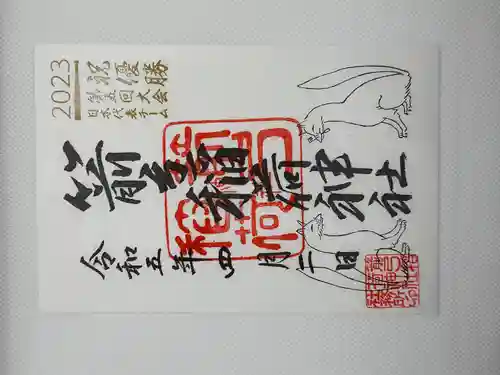 2023
祝優勝
第五回大会
日本代表チーム
箭弓稲荷神社
令和五年四月二日